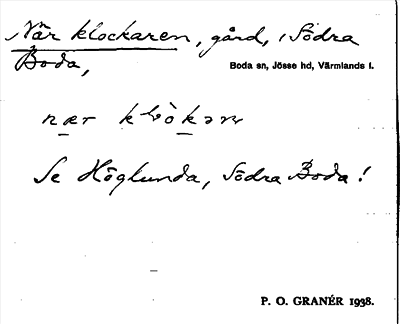 När klockaren, gård, i Södra
Boda,
Boda sn, Jösse hd, Värmlands l.
nær klòkən
Se Höglunda, Södra Boda!
P. O. GRANÉR 1938.